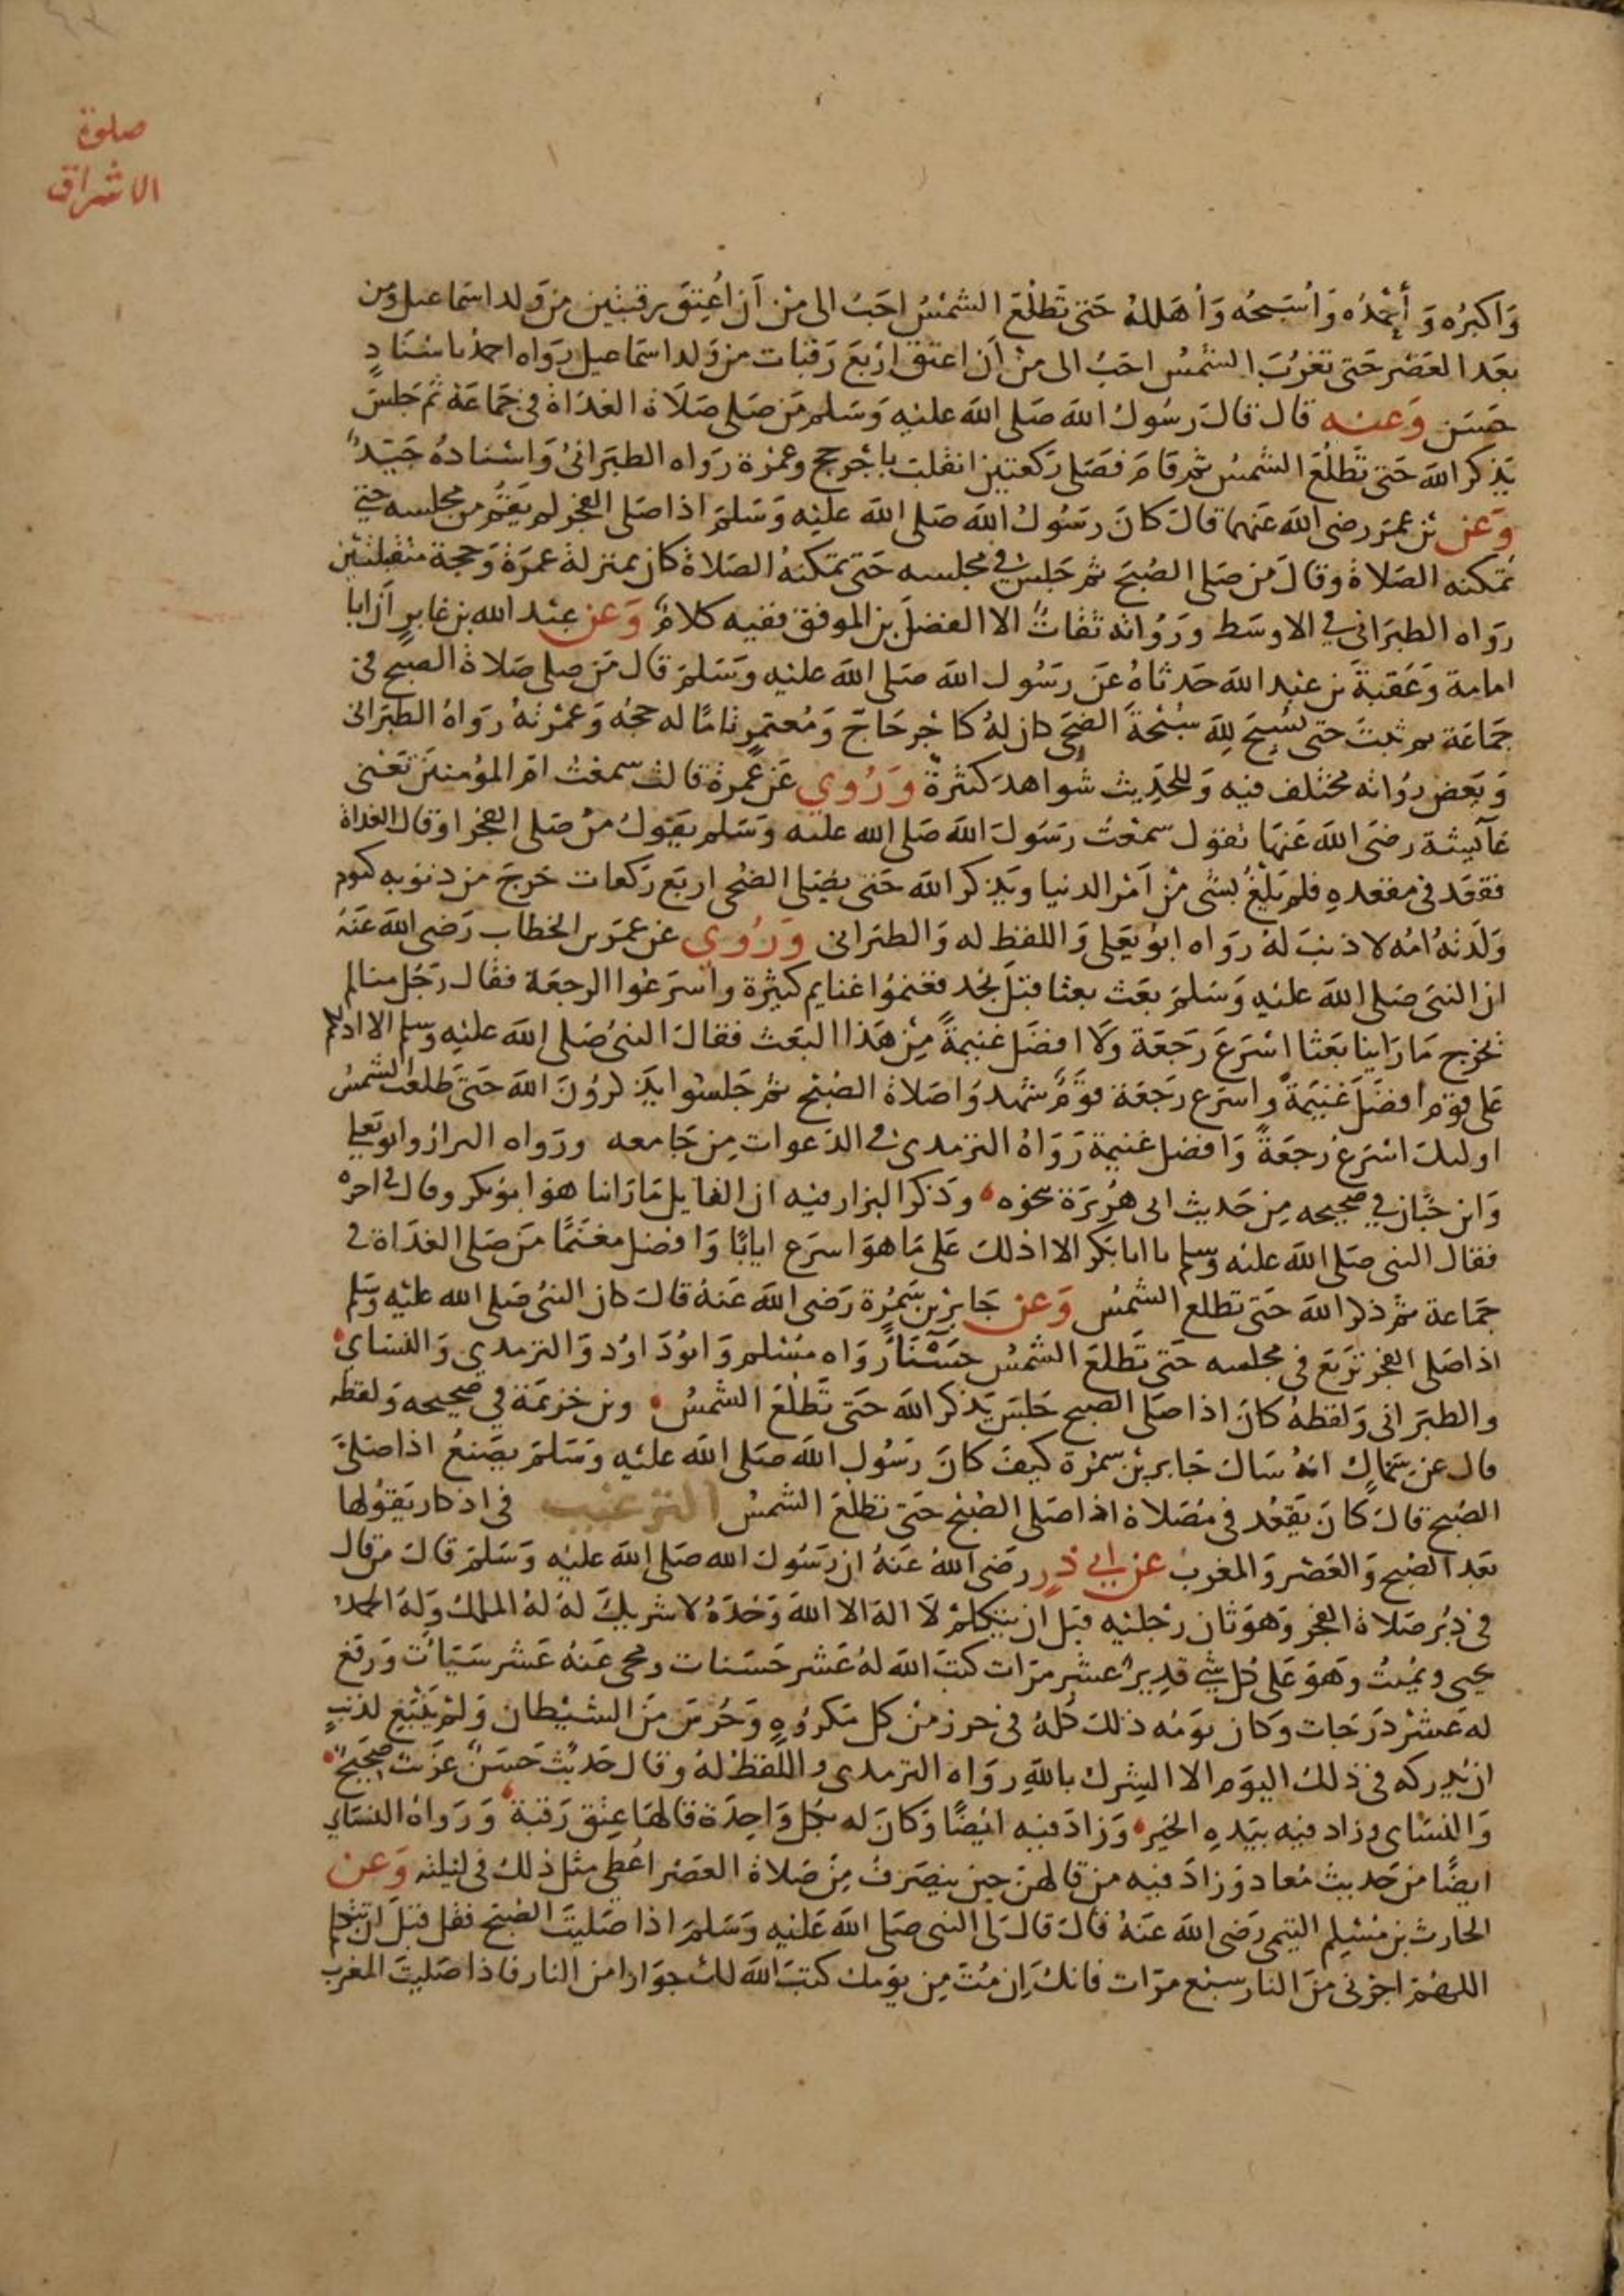 صلوة
الاشراق
وَاكبرُه وَأحْمَدُه وَأُسَبحُه وَأهَللهُ حَتى تَطلُعَ الشمْسُ احَبُ الى مْن أَن أُعِتقَ رقبتين من وَلد اسمَاعيل وَمن
بَعَد العَصْر حَتى تغرُبَ الشمْسُ احَبُ الى مْن أَن اعتق ارْبعَ رَقبات من وَلد اسمَاعيل رَواه احمدُ باسْنَادٍ
حَسَن وَعنه قال قالَ رَسُول الله صَلى الله عليْهِ وَسَلم مَن صَلى صَلَاة الغدَاة فى جَمَاعَة ثم جَلسَ
يَذكر اللهَ حَتى تَطلُعَ الشمسُ ثم قامَ فصَلى رَكعتين انقلبَ باجْر حج وعمرْة رَواه الطبَرانىُ وَاسْنادهُ جَيّدٌ
وَعن بْن عمَر رضى الله عَنهما قالَ كانَ رَسُولُ الله صَلى الله عليْه وَسَلمَ اذا صَلى الفجرَ لم يَقُم من مجلسه حتى
تمكنه الصَلاة وقالَ مَن صَلى الصُبحَ ثم جَلسَ فى مجلسه حَتى تمكنهُ الصَلاة كان بمنزلة عمرَة وَحجة متقبلتين
رَواه الطبَرانى فى الاوسَط ورَوُاته ثقاتٌ الا الفضلَ بن الموفق ففيه كلامٌ وَعن عبْد الله بن غابرٍ أن ابا
امامة وَعُقبةَ بن عبْد الله حَدثاهُ عَن رَسُول الله صَلى الله عليْهِ وَسَلمَ قال مَن صلى صَلاة الصبح فى
جمَاعَة ثم ثبتَ حتى يُسَبحَ لِلهِ سُبْحَةَ الضحَى كان لهُ كاجْر حَاج وَمُعتمرٍ تامًا له حجهُ وَعمرْتهُ رَواهُ الطبَرانى
وَبَعض رُوَاته مختلف فيه وَللحَدِيث شواهدَ كثرةٌ وَرُوي عَن عَمرة قالت سمعْتُ امَ المؤمنين تعْنى
عَآئيشة رضىَ الله عَنهَا تقول سمعْتُ رَسُولَ الله صَلى الله عليْه وَسَلم يقوُلُ مَنْ صَلى الفجرَ اوقال الغداة
فقعَد فى مقعدهِ فلم يَلغُ بشى مْن أمْر الدنيا ويَذكر اللهَ حَتى يصَلى الضُحى اربَع رَكعات خَرجَ من ذنوبه كيوم
وَلدَتهُ امُه لا ذنبَ لهُ رَواه ابوُ يَعلى وَاللفظ له وَالطبَرانى وَرُوي عن عمرَ بن الخطاب رَضى الله عَنهُ
ان النبىَ صَلى الله عليْهِ وَسَلمَ بعَث بعثا قبَلَ نجْد فغنمُوا غنايم كثيْرة واسْرَعُوا الرجعَة فقال رَجُل منا لم
تخرج مَا رَاينا بَعَثا اسْرَعَ رَجَعَة وَلا افضَل غَنيمةً مِنْ هَذا البَعَث فقالَ النبىُ صَلى الله عليْهِ وسلم الا ادلكم
عَلى قوْم افضَل غَنيْمَةً واسْرَع رَجَعَة قوَمٌ شهدوُا صَلاة الصُبْح ثم جَلسُوا يَذكروُنَ اللهَ حَتى طلعَت الشمسُ
اوليكَ اسْرَعُ رَجعَةً وَافضل غَنيمة رَوَاهُ الترمدى فى الدَعوات مِن جَامعه ورَواه البزار وابو يَعلى
وَابن حَبان فى صَحيحه مِن حَديث ابى هُرِيرَة نحوه وذكر البزار فيه ان القايل مَارَاينا هوَ ابوُ بكر وقال فى اخره
فقال النبى صَلى الله عليْه وسلم يا ابا بَكر الا ادلكَ عَلى مَا هوَ اسرَع ايابًا وَافضل مغنَمًا مَن صَلى الغدَاة فى
جمَاعة ثم ذكر اللهَ حَتى تطلع الشمسُ وَعن جَابرْ بن سَمُرَة رَضى الله عَنهُ قالَ كان النبىُ صَلى الله عليْهِ وسَلم
اذا صَلى الفجر تَرَبعَ فى مجلسه حَتى تَطلعَ الشمسُ حَسَنْا رَوَاه مسْلم وَابوُ دَاوُد وَالترمدى وَالنسَاي
والطبَرانى وَلفظهُ كانَ اذا صَلى الصبح جَلسَ يَذكر اللهَ حَتى تَطلُعَ الشمسُ وبن خزيمَة فى صَحيحه وَلفظه
قال عن سَمَاك انهُ سَالَ جَابر بنْ سمرَة كيفَ كانَ رَسُولِ الله صَلى الله عليْهِ وَسَلمَ يصَنعُ اذا صَلىَ
الصُبح قالَ كانَ يَقعُد فى مُصَلاة اذا صَلى الصُبْح حَتى تطلعَ الشمسُ الترغيب فى اذكار يقوُلها
بَعد الصُبح وَالعَصْر وَالمغرب عن ابي ذرٍ رضَى اللهُ عَنهُ ان رَسُولَ الله صَلى الله عليْه وَسَلمَ قالَ من قال
فى دبُر صَلاة الفجر وَهوَ ثان رجْليْه قبَل ان يتَكلمَ لَا الهَ الا اللهُ وَحْدَهُ لا شريكَ لهُ لهُ الملكُ وَلهُ الحمدُ
يحيى ويميُت وهَوَ عَلى كُل شي قديرٌ عشر مَرات كتبَ اللهُ لهُ عَشر حَسَنات ومحى عَنهُ عَشر سَيّات وَرفعَ
له عَشْر دَرَجات وكان يوَمُه ذلك كُلهُ فى حرز من كل مَكروُهٍ وَحُرسَ مَن الشيْطان وَلمْ يَنبغِ لذنبٍ
ان يُدركه فى ذلك اليوَم الا الشِرك باللهِ رَوَاه الترمدى واللفظ لهُ وقال حَديثَ حَسَنٌ غرَيت صَحيحٌ
وَالنسَاى وزاد فيه بيَدهِ الخَير وَزادَ فيه ايضًا وَكانَ له بكُل وَاحدَة قالهَا عتِق رَقبة وَرَواهُ النسَاي
ايضًا من حَديث مُعاد وَزادَ فيه من قالهن حين ينصَرفُ مِنْ صَلاة العَصْر أعْطى مثل ذلك فى ليلته وَعن
الحارث بن مسْلِم التيمى رَضى الله عَنهُ قالَ قالَ لى النبى صَلى الله عَليْهِ وَسَلمَ اذا صَليتَ الصُبحَ فقل قبَل ان تتكلم
اللهُمَ اجرْنى مَنَ النار سبْع مرَات فانكَ اِن مُتَ مِن يوَمك كتبَ اللهُ لك جوَارا من النار فاذا صَليتَ المغرب